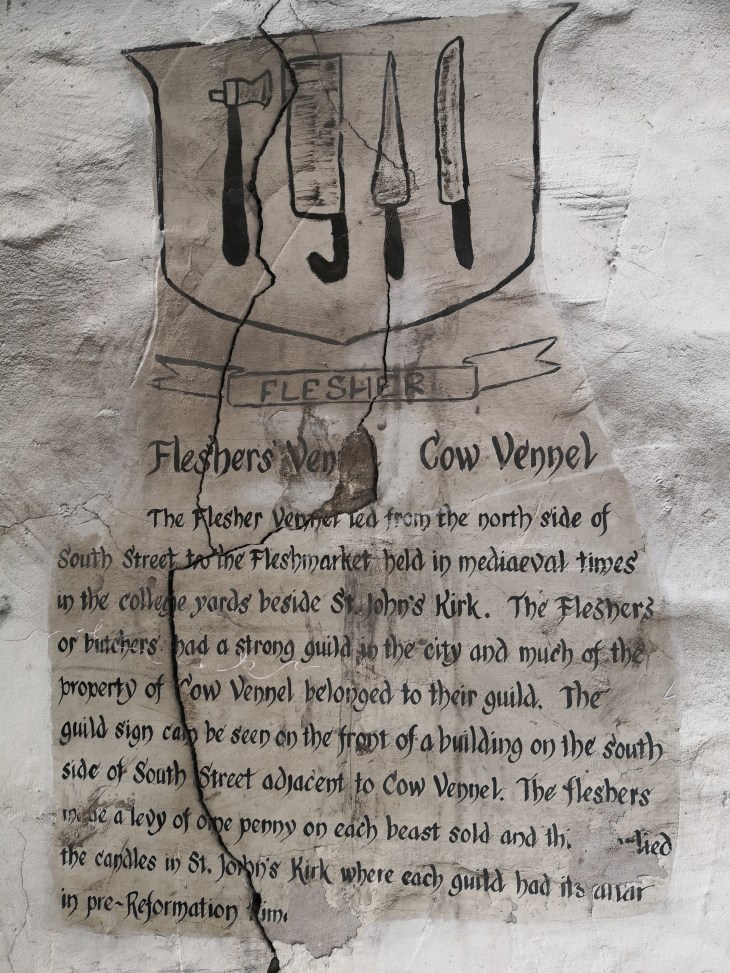 FLESHER
Fleshers Cow Vennel
The Flesher Vennel led from the north side of
South Street to the Fleshmarket held in mediaeval times
in the college yards beside St. John's Kirk. The Fleshers
or butchers had a strong guild in the city and much of the
property of Cow Vennel belonged to their guild. The
guild sign can be seen on the front of a building on the south
side of South Street adjacent to Cow Vennel. The fleshers
made a levy of one penny on each beast sold and
the candles in St. John's Kirk where each guild had its altar
in pre-Reformation